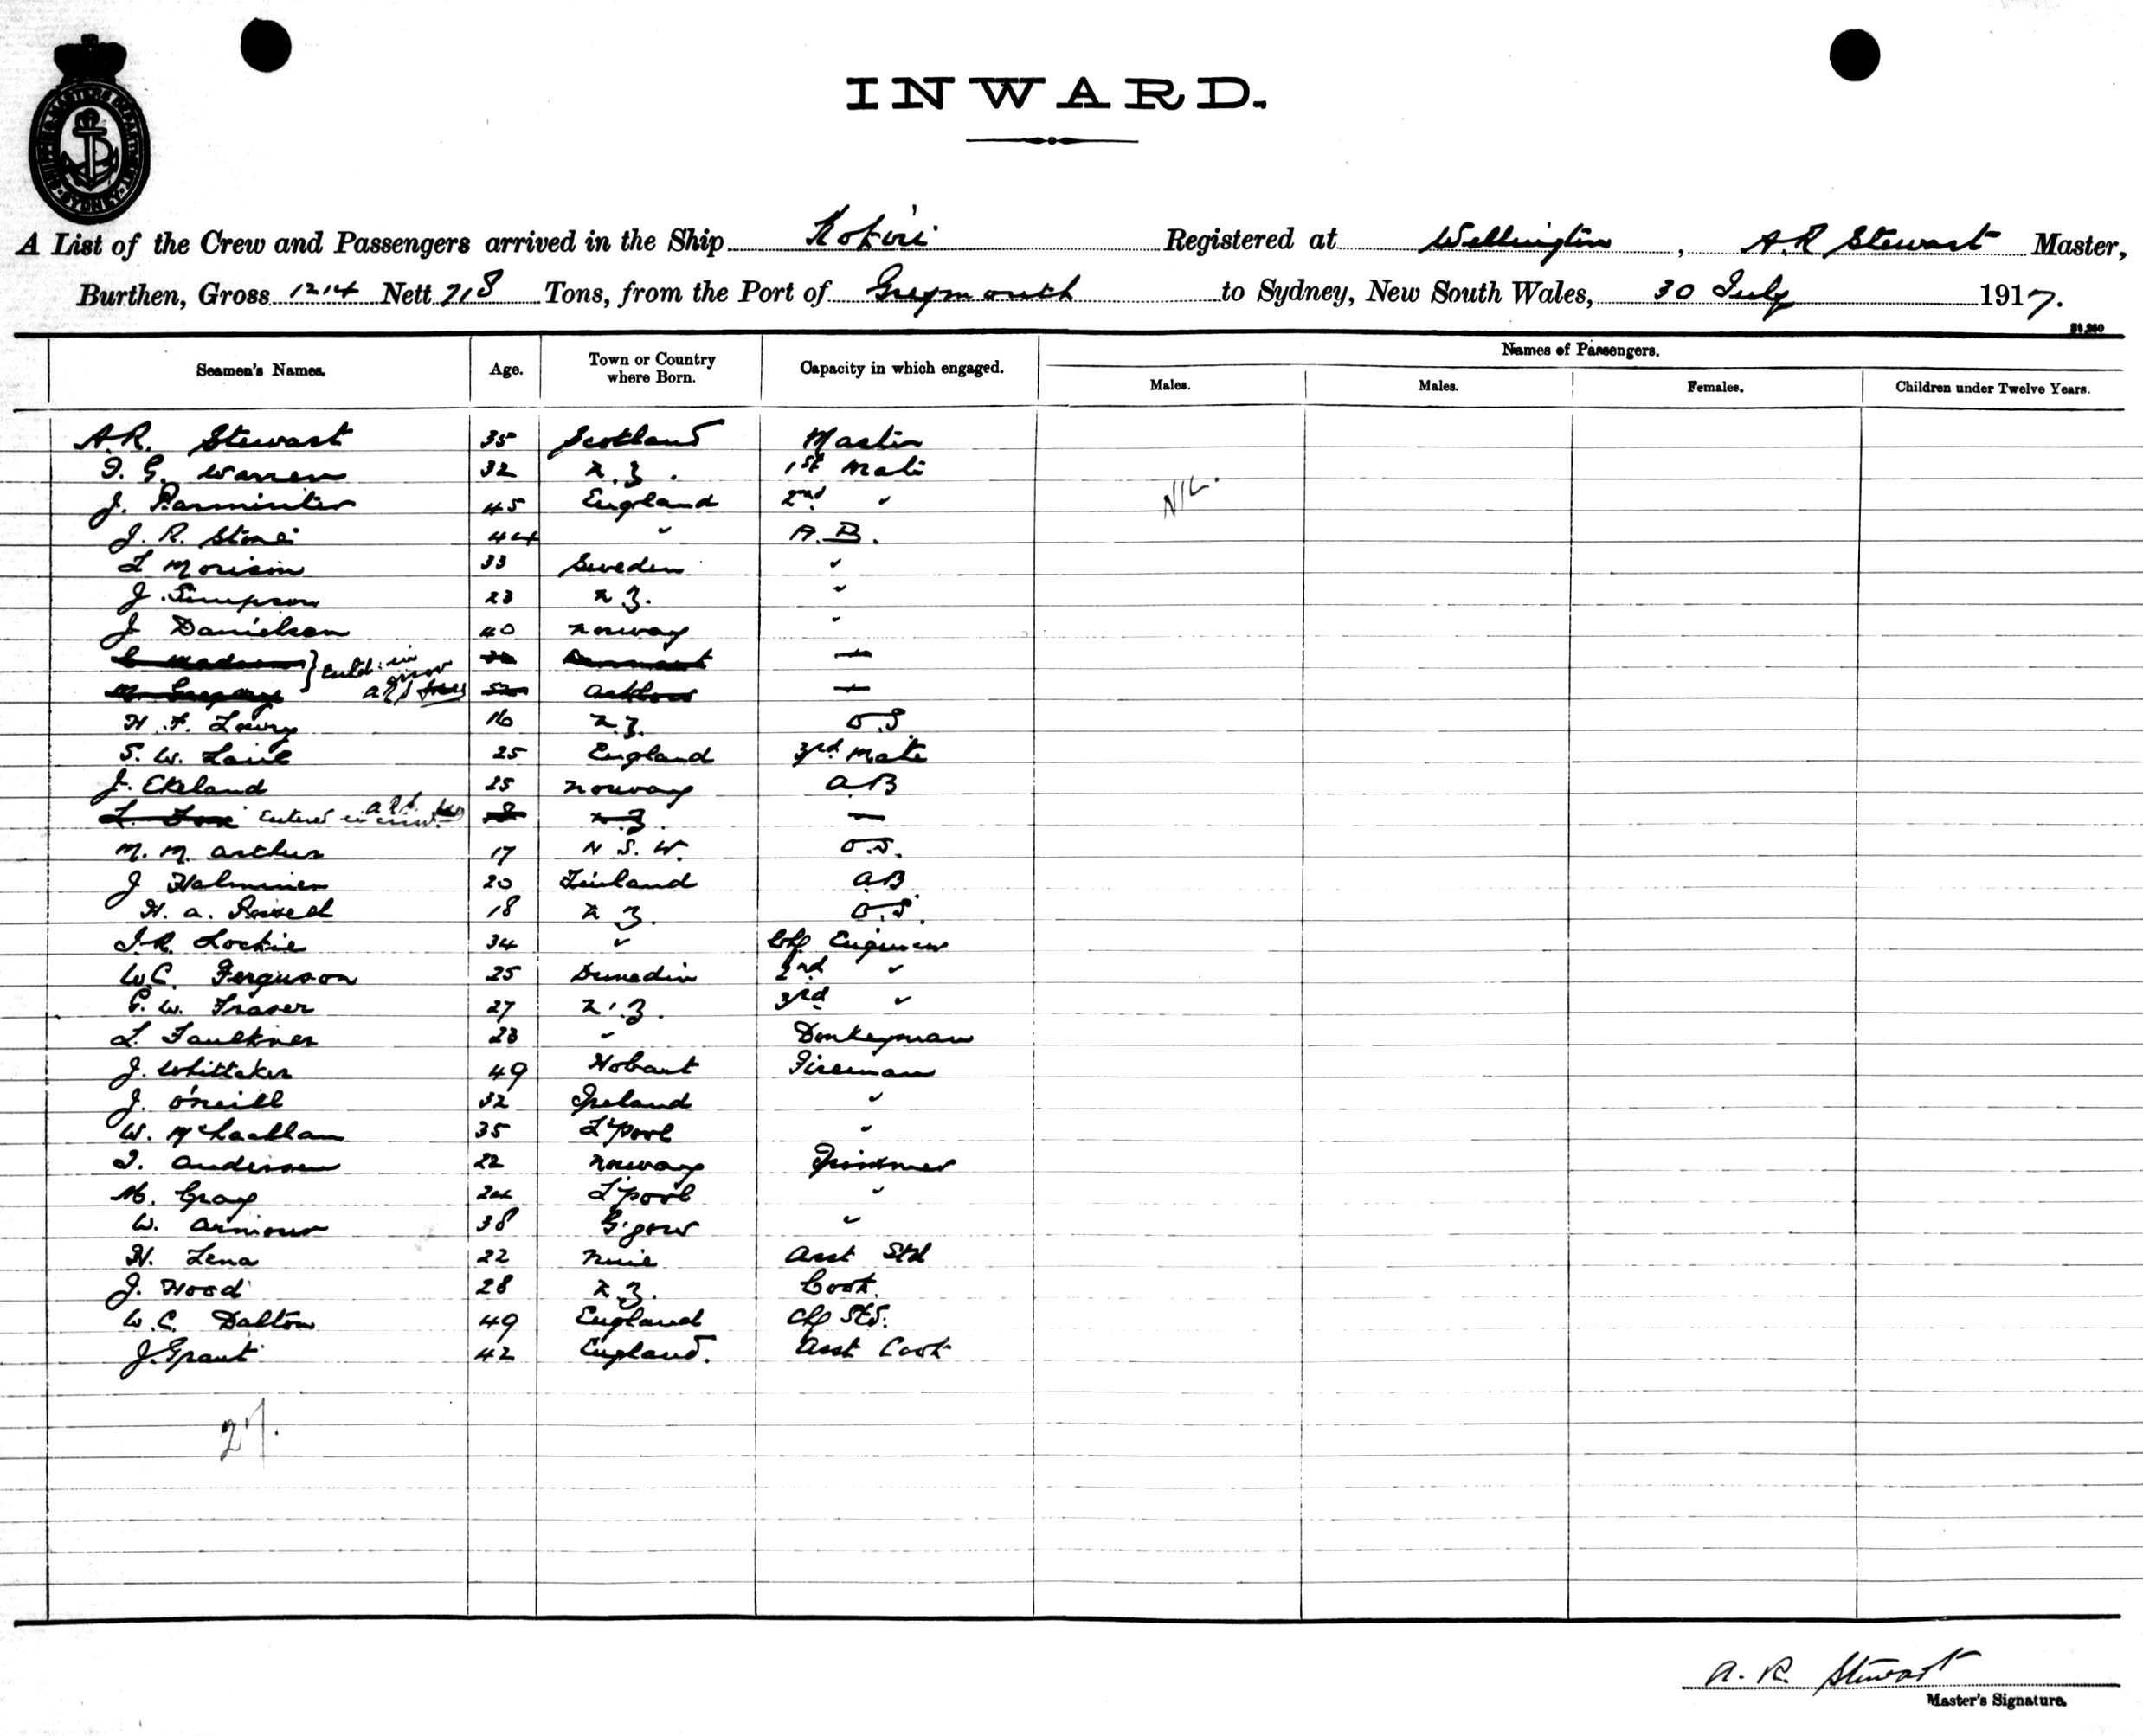 SHIPPING MASTERS DEPARTMENT SYDNEY
INWARD.
A List of the Crew and Passengers arrived in the Ship Kokiri Registered at Wellington, A.R Stewart Master,
Burthen, Gross 1214 Nett 718 Tons, from the Port of Greymouth to Sydney, New South Wales, 30 July 1917.
Seamen's Names. Age. Town or Country where Born. Capacity in which engaged. Names of Passengers.
Males. Males. Females. Children under Twelve Years.
A.R. Stewart 35 Scotland Master
G. Warren 32 N.Z. 1st Mate
J. Parminter 45 England 2nd " NIL.
J. R. Stone 44 " A.B.
L Morison 33 Sweden "
J. Simpson 23 N.Z. "
J Danielsen 40 Norway "
in error
H. F. Lowry 16 N.Z. O.S.
S. W. 25 England 3rd Mate
J. Ekeland 25 Norway A.B
L. Fox Entered in error N.Z.
M. M. Arthur 17 N.S.W. O.S.
J Halminen 20 Finland A.B
H. A. 18 N.Z. O.S.
J.R. Lockie 34 " Chf Engineer
W.C. Ferguson 25 Dunedin 2nd "
G. W. Fraser 27 N.Z. 3rd "
L. Faulkner 23 " Donkeyman
J. Whittaker 49 Hobart Fireman
J. O'Neill 32 Ireland "
W. McLachlan 35 L'pool "
Andersen 22 Norway Trimmer
M. Gray 24 L'pool "
W. Armour 38 G'gow "
H. Lena 22 Niue Asst Std
J. Hood 28 N.Z. Cook.
W. C. Dalton 49 England Chf Std.
J. Grant 42 England. Asst Cook
27.
A. R. Stewart
Master's Signature.